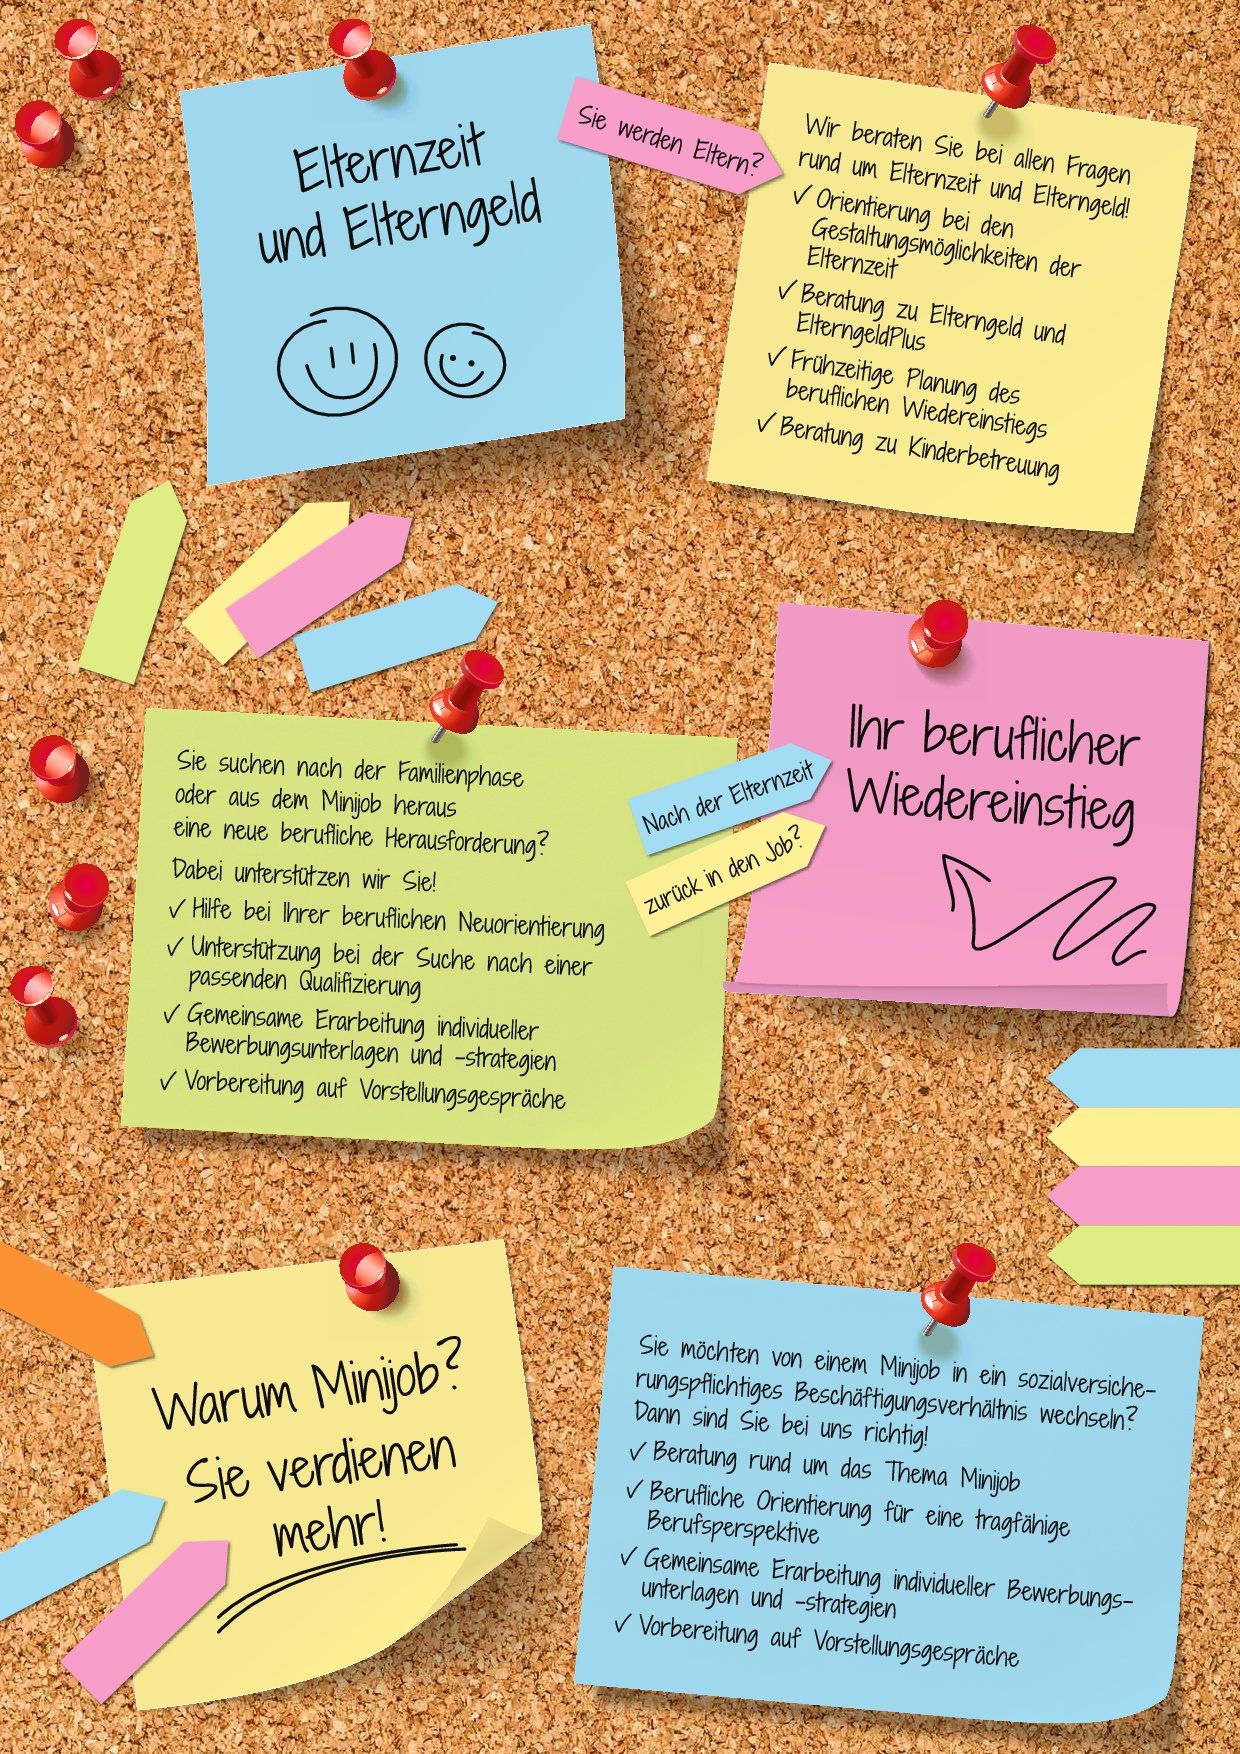 Elternzeit
und Elterngeld
Sie werden Eltern?
Wir beraten Sie bei allen Fragen
rund um Elternzeit und Elterngeld!
✓ Orientierung bei den
Gestaltungsmöglichkeiten der
Elternzeit
✓ Beratung zu Elterngeld und
ElterngeldPlus
✓ Frühzeitige Planung des
beruflichen Wiedereinstiegs
✓ Beratung zu Kinderbetreuung
Ihr beruflicher
Wiedereinstieg
Nach der Elternzeit
zurück in den Job?
Sie suchen nach der Familienphase
oder aus dem Minijob heraus
eine neue berufliche Herausforderung?
Dabei unterstützen wir Sie!
✓ Hilfe bei Ihrer beruflichen Neuorientierung
✓ Unterstützung bei der Suche nach einer
passenden Qualifizierung
✓ Gemeinsame Erarbeitung individueller
Bewerbungsunterlagen und -strategien
✓ Vorbereitung auf Vorstellungsgespräche
Warum Minijob?
Sie verdienen
mehr!
Sie möchten von einem Minijob in ein sozialversiche-
rungspflichtiges Beschäftigungsverhältnis wechseln?
Dann sind Sie bei uns richtig!
✓ Beratung rund um das Thema Minijob
✓ Berufliche Orientierung für eine tragfähige
Berufsperspektive
✓ Gemeinsame Erarbeitung individueller Bewerbungs-
unterlagen und -strategien
✓ Vorbereitung auf Vorstellungsgespräche